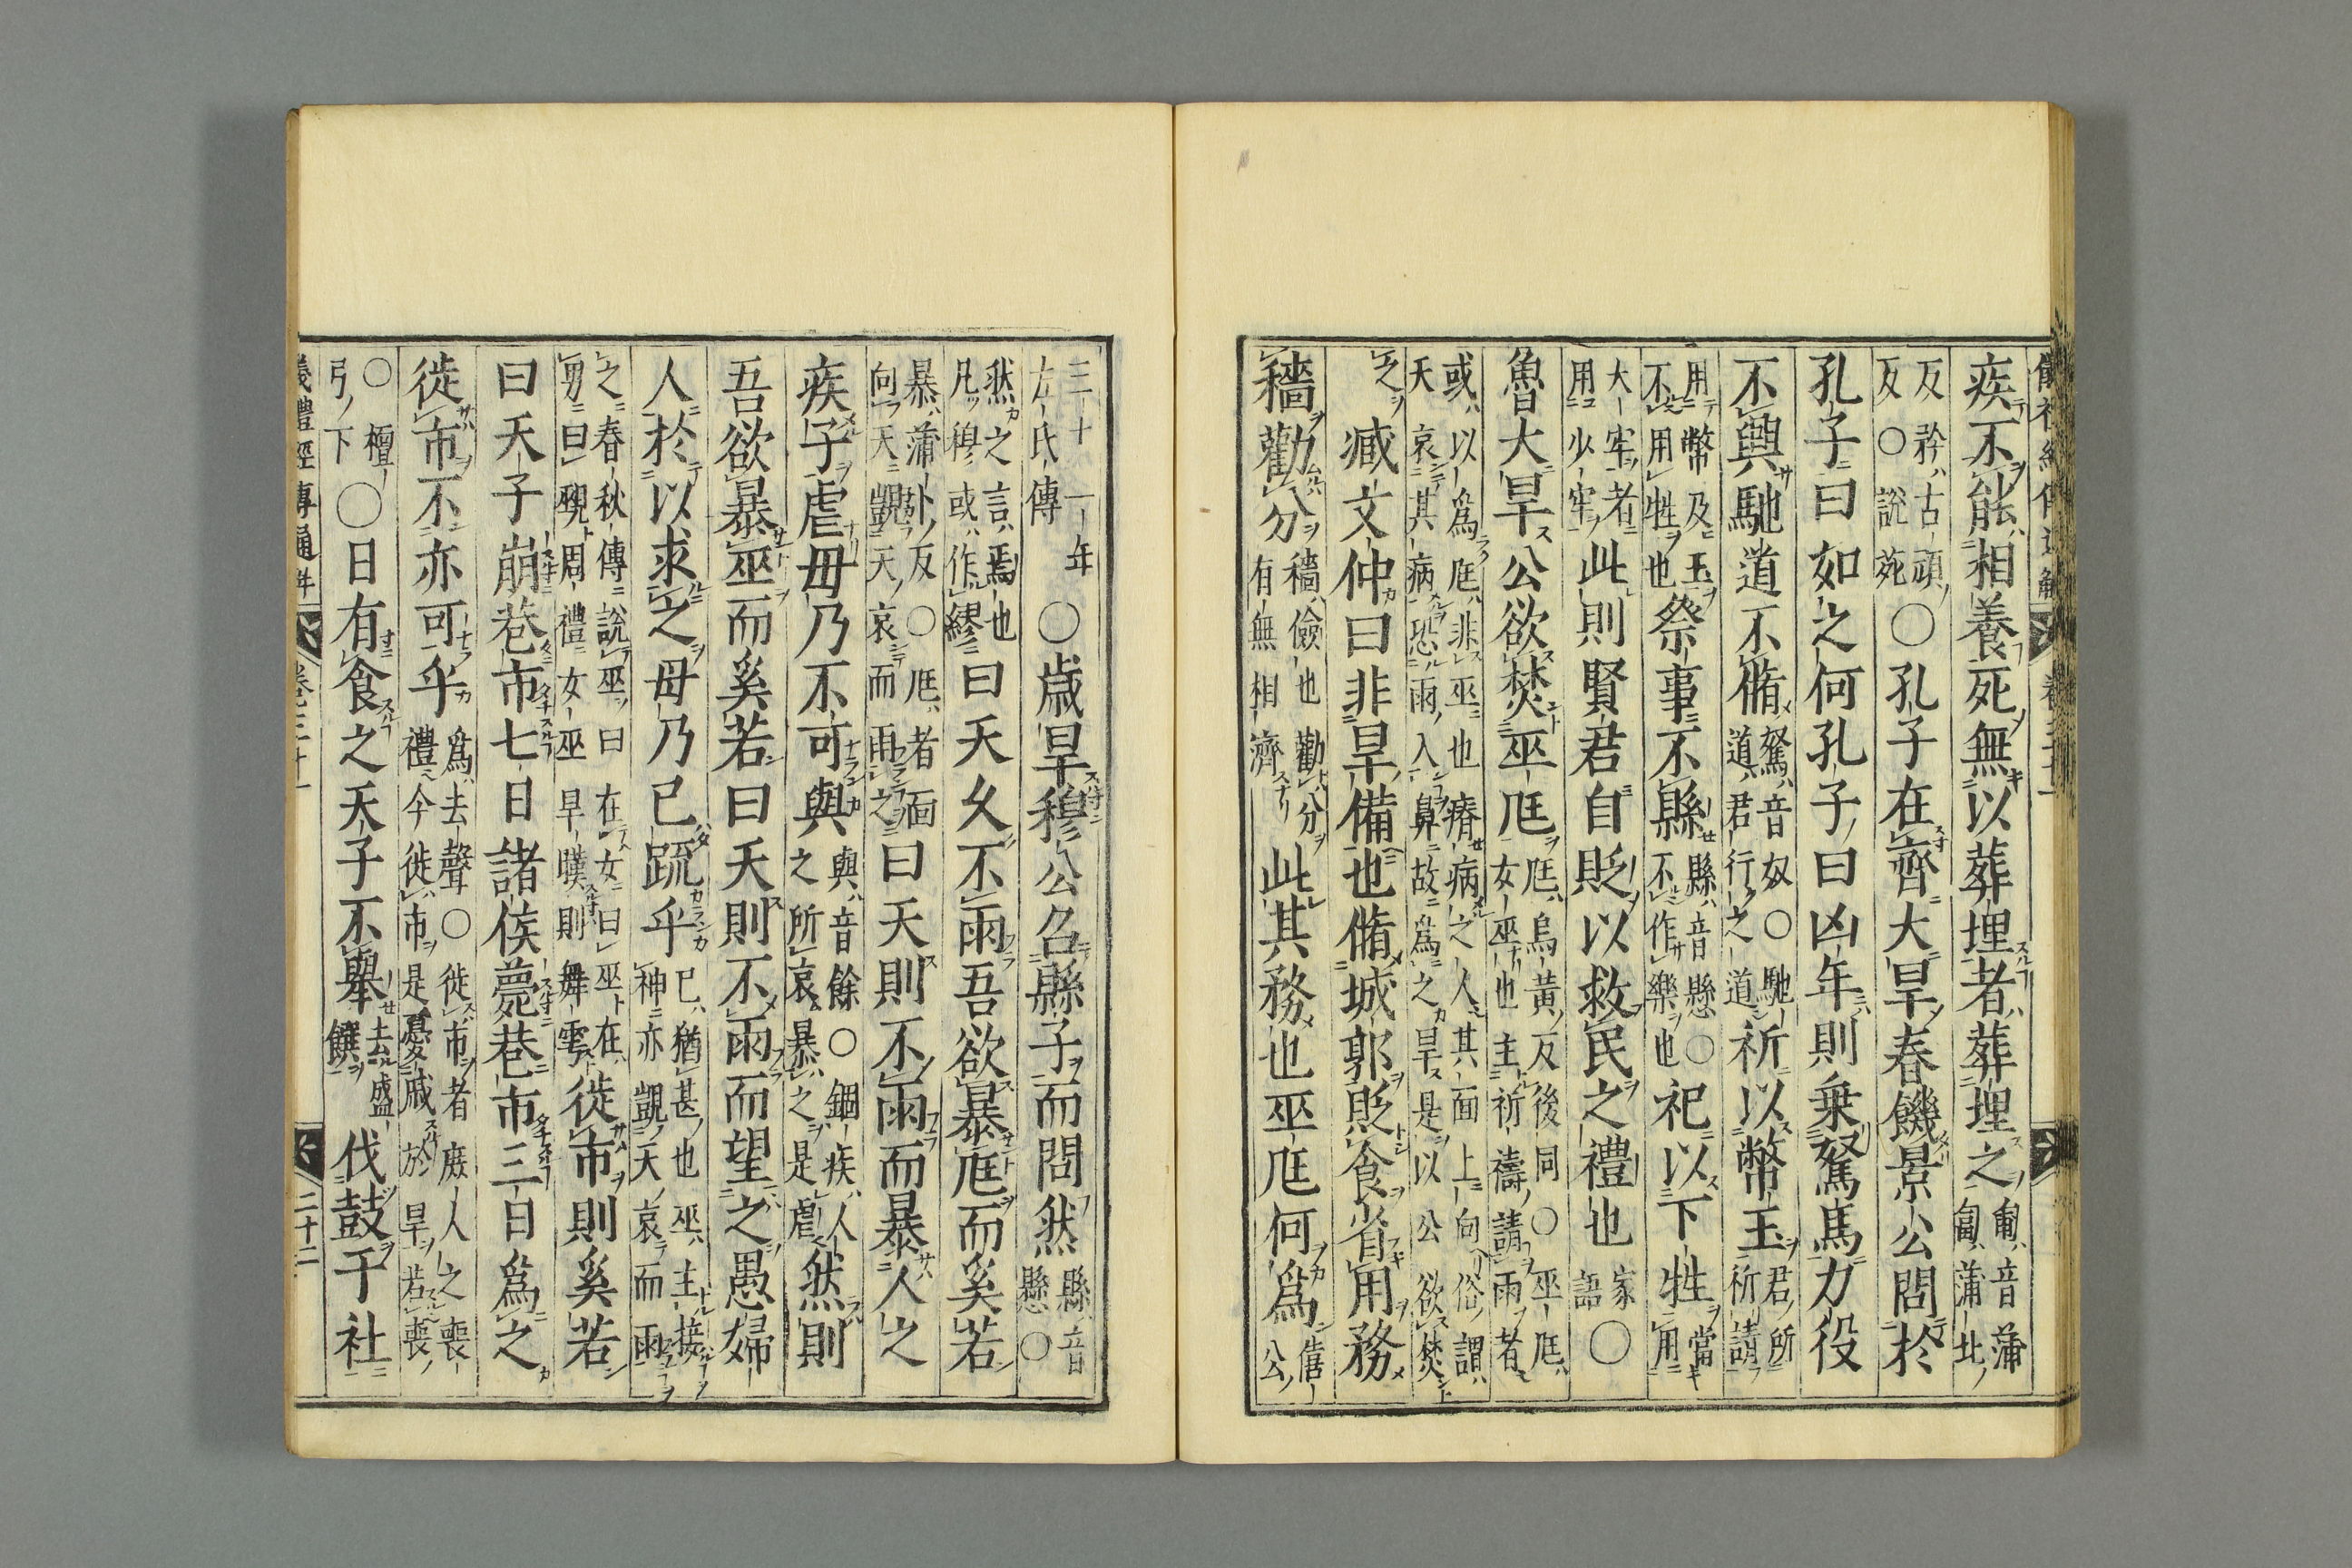 疾不能相養死無以葬埋者葬埋之 匍音蒲匐蒲北
反矜古頑反○說苑○孔子在齊大旱春饑景公問於
孔子曰如之何孔子曰凶年則乗駑馬力役
不興馳道不脩 駑音奴○馳道君行之道 祈以幣玉 君所祈請
用幣及玉不用牲也 祭事不縣 縣音懸○不作樂也 祀以下牲 當用
大牢者用少牢 此則賢君自貶以救民之禮也 家語 ○
魯大旱公欲焚巫尫 尫烏黃反後同○巫尫女巫也主祈禱請雨者
或以爲尫非巫也瘠病之人其面上向俗謂天哀其病恐雨入鼻故爲之旱是以公欲焚
之 臧文仲曰非旱備也脩城郭貶食省用務
穡勸分 穡儉也勸分有無相濟 此其務也巫尫何爲 僖公
三十一年左氏傳 ○歳旱穆公名縣子而問然 縣音懸○
然之言焉也凡穆或作繆 曰天乆不雨吾欲暴尫而奚若
暴蒲卜反○尫者面向天覬天哀而雨之 曰天則不雨而暴人之
疾子虐毋乃不可與 與音餘○錮疾人之所哀暴之是虐 然則
吾欲暴巫而奚若曰天則不雨而望之愚婦
人於以求之毋乃已疏乎 已猶甚也巫主接神亦覬天哀而雨
之春秋傳說巫曰在女曰巫在男曰覡周禮女巫旱暵則舞雩 徙市則奚若
曰天子崩巷市七日諸侯薨巷市三日爲之
徙市不亦可乎 爲去聲○徙市者庶人之喪禮今徙市是憂戚於旱若喪
○檀弓下 ○日有食之天子不舉 去盛饌 伐鼓于社
儀禮經傳通解 卷三十一 二十二